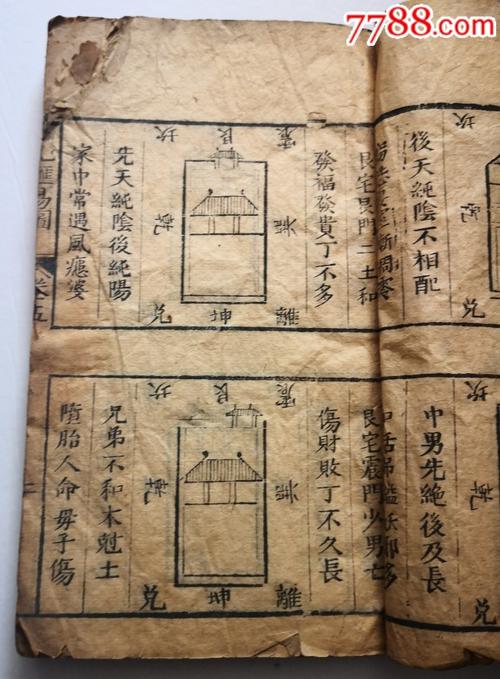 7788.com在线
後天純陰不相配
乾
兌
艮宅艮門二土和
發福發貴丁不多
震
艮
坎
巽
乾
離
坤
兌
先天純陰後純陽
家中常遇風婆
卷五
中男先絕後及長
乾
兌
艮宅震門少男亡
傷財敗丁不久長
震
艮
坎
巽
乾
離
坤
兌
兄弟不和木尅土
墮胎人命母子傷